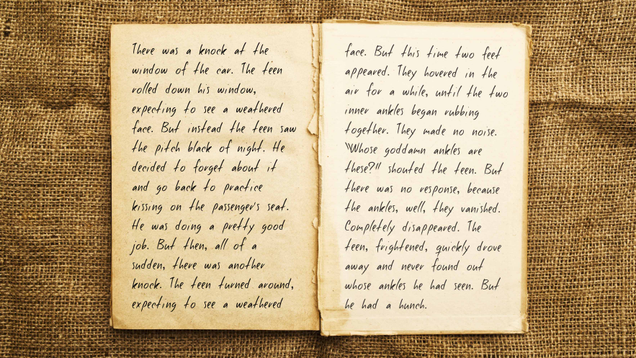 There was a knock at the
window of the car. The teen
rolled down his window,
expecting to see a weathered
face. But instead the teen saw
the pitch black of night. He
decided to forget about it
and go back to practice
kissing on the passenger's seat.
He was doing a pretty good
job. But then, all of a
sudden, there was another
knock. The teen turned around,
expecting to see a weathered
face. But this time two feet
appeared. They hovered in the
air for a while, until the two
inner ankles began rubbing
together. They made no noise.
"Whose goddamn ankles are
these?!" shouted the teen. But
there was no response, because
the ankles, well, they vanished.
Completely disappeared. The
teen, frightened, quickly drove
away and never found out
whose ankles he had seen. But
he had a hunch.